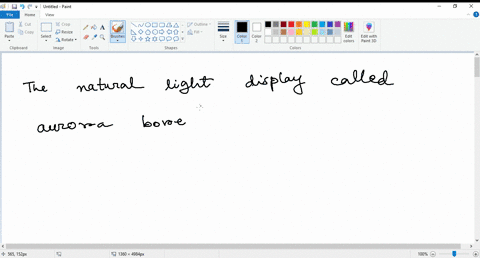 Untitled - Paint
File Home View
Paste Select Crop Resize Rotate Brushes Outline Fill Size Color 1 Color 2 Edit colors Edit with Paint 3D
Clipboard Image Tools Shapes Colors
The natural light display called
aurora bore
565, 152px 1380 × 4994px 100%